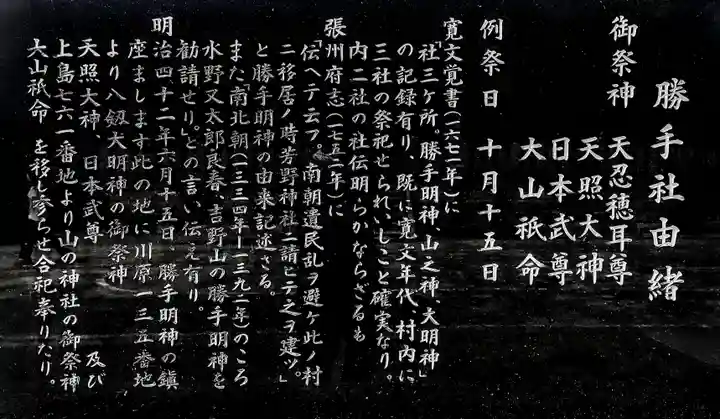 勝手社由緒
御祭神 天忍穂耳尊
天照大神
日本武尊
大山祇命
例祭日 十月十五日
寛文覚書(一六七一年)に
「社三ケ所。勝手明神、山之神、大明神」
の記録有り、既に寛文年代、村内に
三社の祭祀せられいしこと確実なり。
内二社の社伝明らかならざるも
張州府志(一七五二年)に
「伝ヘテ云フ。南朝遺民乱ヲ避ケ此ノ村
ニ移居ノ時芳野神社ニ請ヒテ之ヲ建ツ。」
と勝手明神の由来記述さる。
また「南北朝(一三三四年ー一三九二年)のころ
水野又太郎良春、吉野山の勝手明神を
勧請せり。」との言い伝え有り。
明治四十二年六月十五日、勝手明神の鎮
座まします此の地に川原一三五番地
より八剱大明神の御祭神
天照大神 日本武尊 及び
上島七六一番地より山の神社の御祭神
大山祇命 を移し参らせ合祀奉りたり。